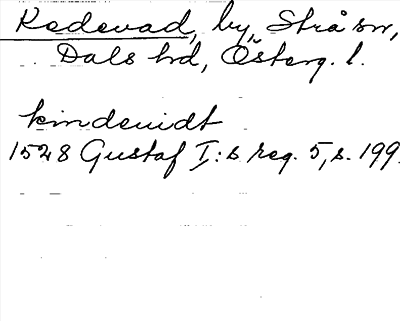 Kedevad, by, Strå sn,
Dals hd, Österg. l.
kindeuidt
1528 Gustaf I:s reg. 5, s. 199.